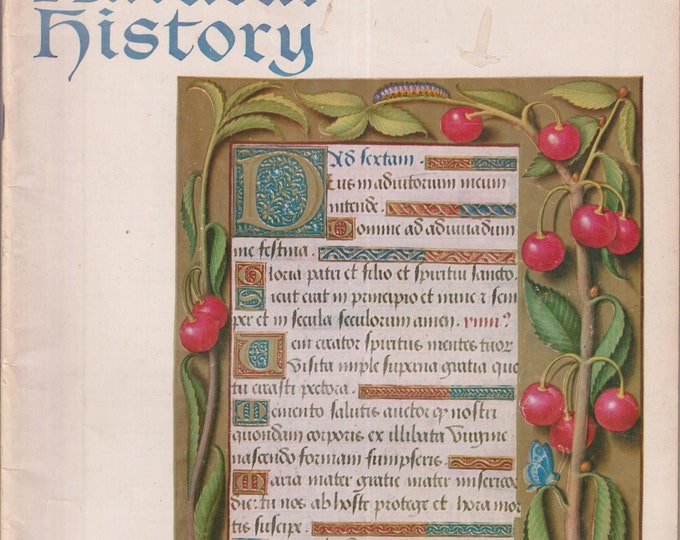 Natural
History
Ad sextam.
Deus in adiutorium meum
intende.
Domine ad adiuuadum
me festina.
Gloria patri et filio et spiritui sancto.
Sicut erat in principio et nunc z sem
per et in secula seculorum amen. ymn?
Veni creator spiritus mentes tuor
Visita imple superna gratia que
tu creasti pectora.
Memento salutis auctor q nostri
quondam corporis ex illibata Virgine
nascendo formam sumpseris.
Maria mater gratie mater misericor
die: tu nos ab hoste protege et hora mor
tis suscipe.